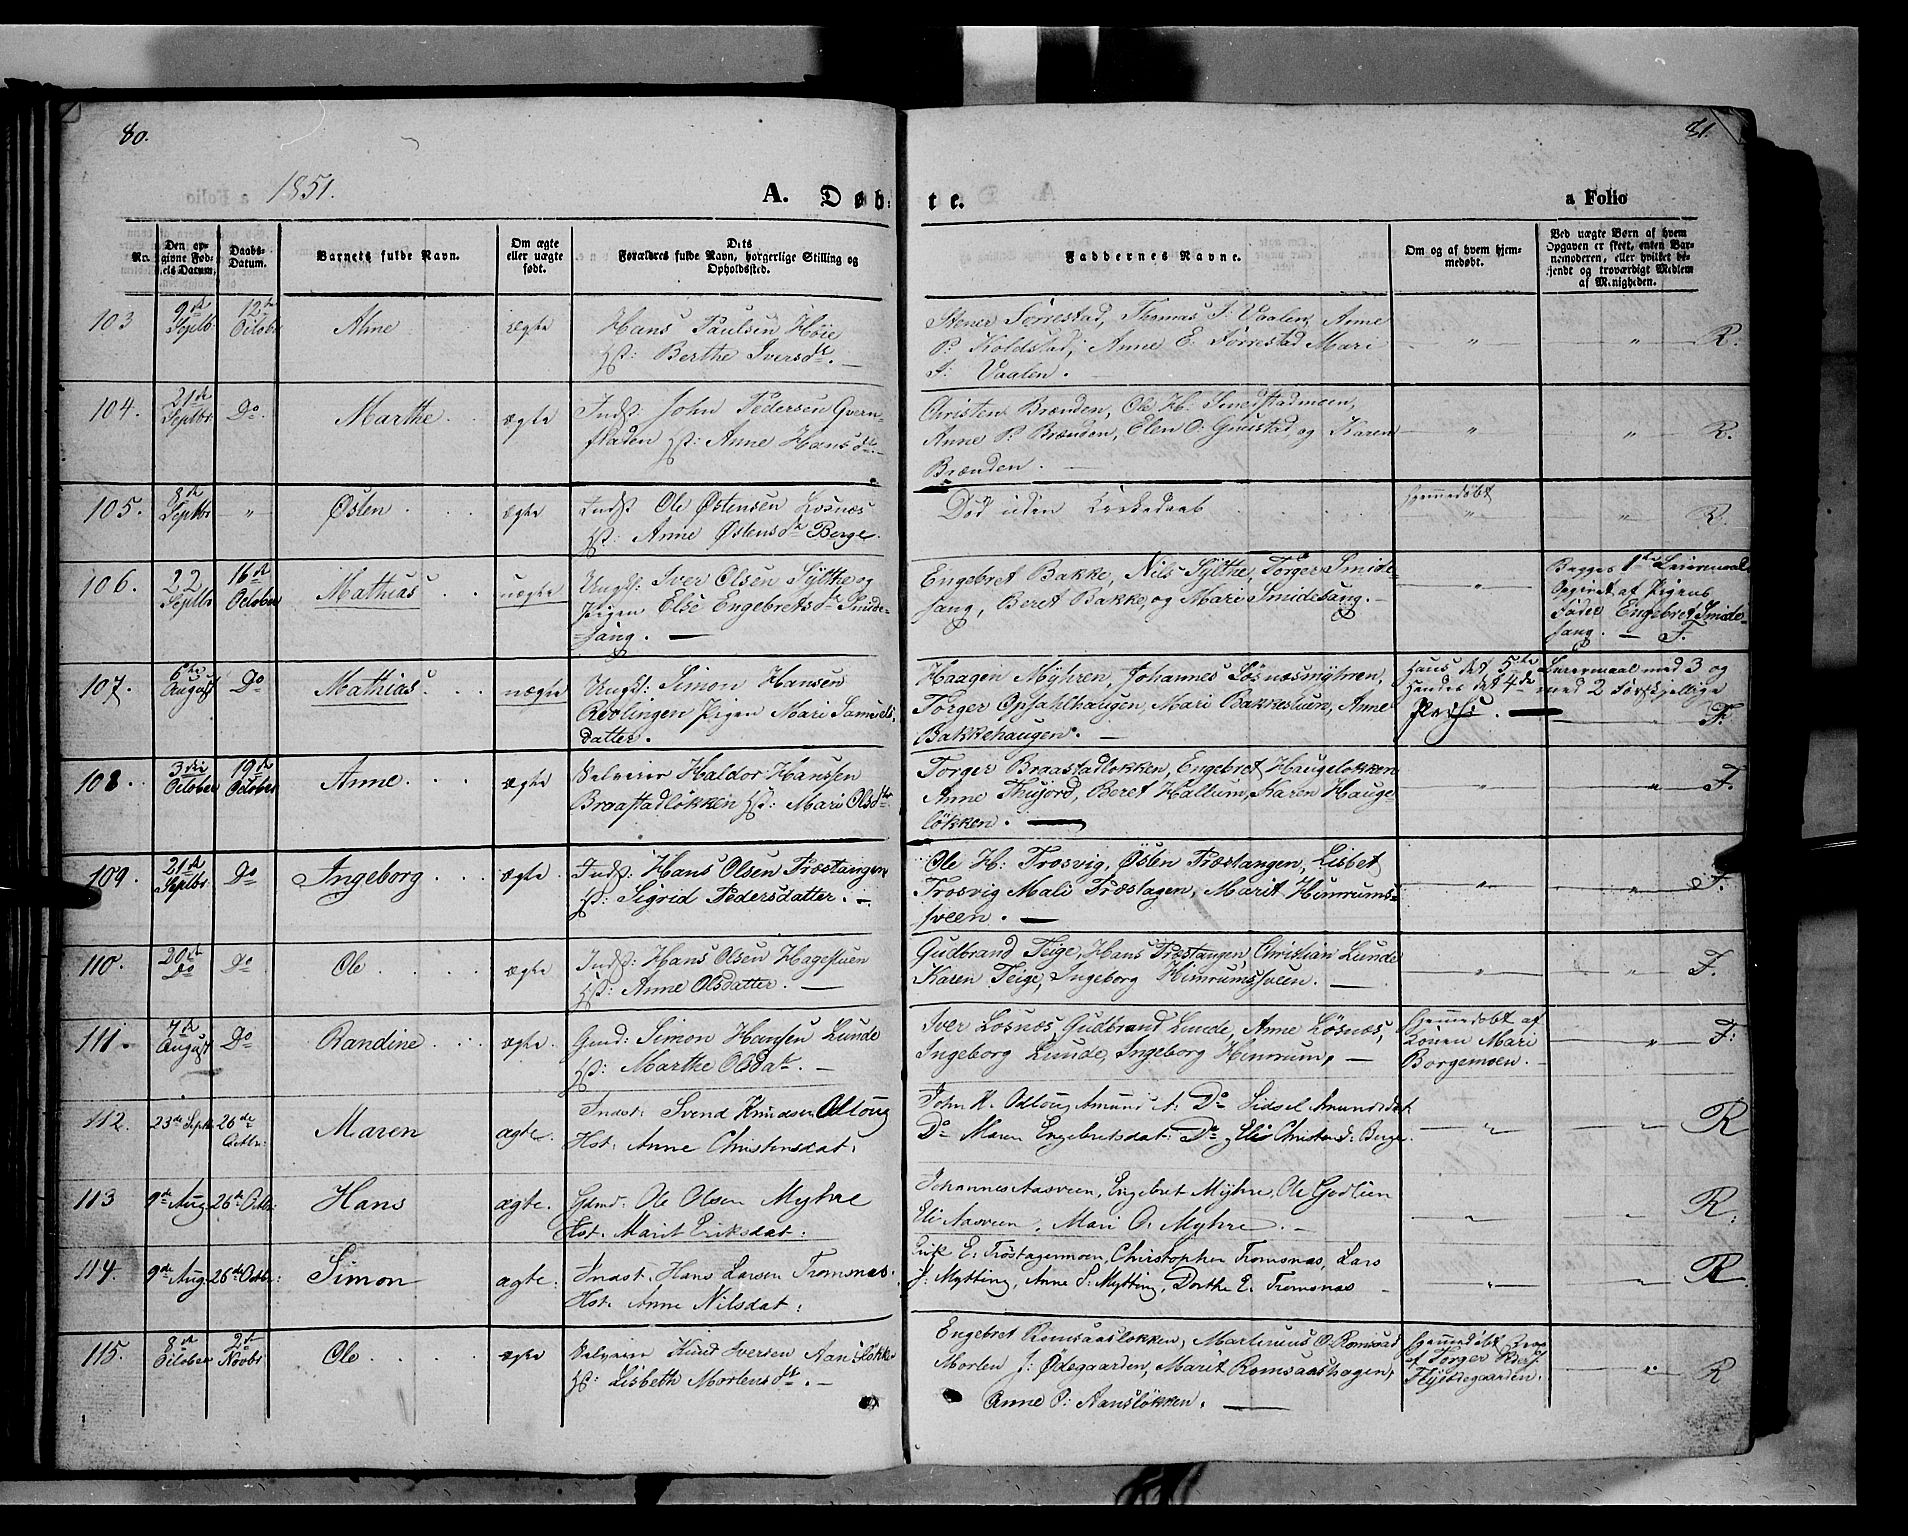 80.
81.
1851.
A. Døb-
te.
a Folio
No.
Den op-
givne Fød-
sels Datum.
Daabs-
Datum.
Barnets fulde Navn.
Om ægte
eller uægte
født.
Dets
Forældres fulde Navn, borgerlige Stilling og
Opholdssted.
Faddernes Navne.
Om og af hvem hjem-
medøbt.
Ved uægte Børn af hvem
Opgaven er skeet, enten Bar-
nemoderen, eller hvilket be-
kjendt og troværdigt Medlem
af Menigheden.
103
9de
Septbr
12te
October
Anne
ægte
Hans Paulsen Høie
Hst: Berthe Iversdtr. —
Stener Torrestad, Thomas I. Vaalen, Anne
P: Koldstad, Anne E. Torrestad Mari
I: Vaalen.
" " R.
104.
21de
Septbr
Do.
Marthe
ægte
Indst: John Pedersen Qvern-
staden Hst: Anne Hansdtr.
Christen Brænden, Ole H: Smedstadmoen,
Anne P: Brænden, Elen O: Grustad, og Karen
Brænden. —
" " R.
105.
8de
Septbr
"
Østen
ægte
Indst Ole Østensen Losnæs
Hst: Anne Østensdtr Berge.
Død uden Kirkedaab
Hjemmedøbt
" " R.
106.
22
Septbr
16de
October
Mathias
uægte
Ungk: Iver Olsen Sylthe og
Pigen Else Engebretsdtr Smide-
sang. —
Engebret Bakke, Nils Sylthe, Torger Smide-
sang, Beret Bakke, og Mari Smidesang. —
"
Begges 1ste Leiermaal
Opgivet af Pigens
Fader Engebret Smide-
sang. — F.
107.
6te
August
Do
Mathias
uægte
Ungk: Simon Hansen
Røvlingen Pigen Mari Samuels
datter.
Haagen Myhren, Johannes Løsnæsmyhren,
Torger Opsahlhaugen, Mari Bakkestuen, Anne
Bakkehaugen. —
Hans det 5te Leiermaal med 3 og
Hendes det 4de med 2 forskjellige
Perss. — F.
108.
3die
October
19de
October
Anne
ægte
Selveier Haldor Hanssen
Braastadløkken Hst: Mari Olsdtr
Torger Braastadløkken, Engebret Haugeløkken
Anne Thujord, Beret Hallum, Karen Hauge-
løkken. —
" " F.
109.
21de
Septbr
Do
Ingeborg
ægte
Indst: Hans Olsen Træstangen
Hst: Sigrid Pedersdatter. —
Ole H: Trosvig, Østen Træstangen, Lisbet
Trosvig Mali Træstagen, Marit Himrums-
sveen. —
" " F.
110.
20de
Do
Do
Ole
ægte
Indst: Hans Olsen Hagestuen
Hst: Anne Olsdatter. —
Gudbrand Teige, Hans Træstangen, Christian Lunde
Karen Teige, Ingeborg Himrumssveen. —
" " F.
111.
7de
August
Do
Randine
ægte
Gmd: Simon Hansen Lunde
Hst: Marthe Olsdatr. —
Iver Losnæs, Gudbrand Lunde, Anne Løsnæs,
Ingeborg Lunde, Ingeborg Himrum, —
Hjemmedøbt af
Konen Mari
Borgemoen. —
" F:
112.
23de Septbr
26de
Octbr:
Maren
ægte.
Indst: Svend Knudsen Odloug
Hst: Anne Christensdat:
John K. Odloug Amund A: Do Sidsel Amundsdat
Do Maren Engebretsdat: Do, Eli Christensd: Berge.
" " R
113
9de Aug
26de Octbr:
Hans
ægte.
Gdmd: Ole Olsen Myhre
Hst. Marit Eriksdat:
Johannes Aasveen, Engebret Myhre, Ole Godlien
Eli Aasveen, Mari O: Myhre. —
" " R:
114.
9de Aug
26de Octbr:
Simon
ægte:
Indst. Hans Larsen Tromsnas.
Hst. Anne Nilsdat:
Erik E: Trøstagenmoen, Christopher Tromsnas, Lars
J: Mytting, Anne S: Mytting, Dorthe E. Tromsnas —
" " R
115.
8de
October
2de
Novbr
Ole
ægte
Selveier Knud Iversen Aansløkken
Hst: Lisbeth Mortensdtr. —
Engebret Romsaasløkken, Martinus O. Romsaas
Morten J: Ødegaarden, Marit Romsaashagen,
Anne O: Aansløkken. —
Hjemmedøbt
af Torger Peders:
Flyødegaarden.
" R